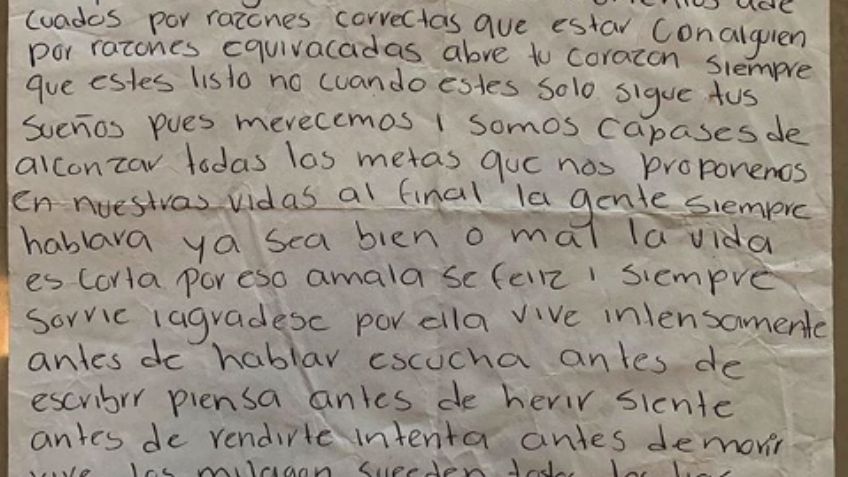 cuados por razones correctas que estar con alguien
por razones equivacadas abre tu corazon siempre
que estes listo no cuando estes solo sigue tus
sueños pues merecemos i somos capases de
alconzar todas las metas que nos proponemos
en nuestras vidas al final la gente siempre
hablara ya sea bien o mal la vida
es corta por eso amala se feliz i siempre
sorrie iagradese por ella vive intensamente
antes de hablar escucha antes de
escribir piensa antes de herir siente
antes de rendirte intenta antes de morir
vive los suceden todos los